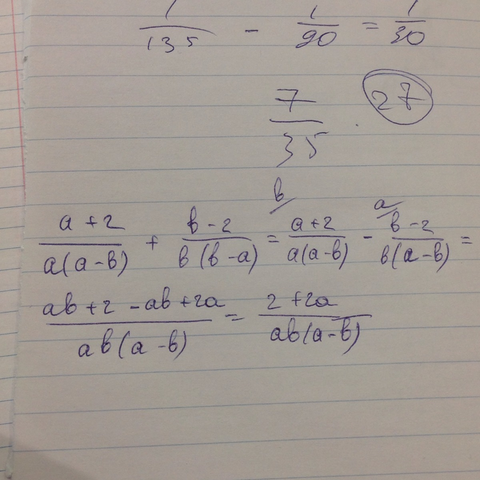 1/135 - 1/90 = 1/30
7/35 . 27
(a+2)/(a(a-b)) + (b-2)/(b(b-a)) = b/ (a+2)/(a(a-b)) - a/ (b-2)/(b(a-b)) =
(ab+2-ab+2a)/(ab(a-b)) = (2+2a)/(ab(a-b))